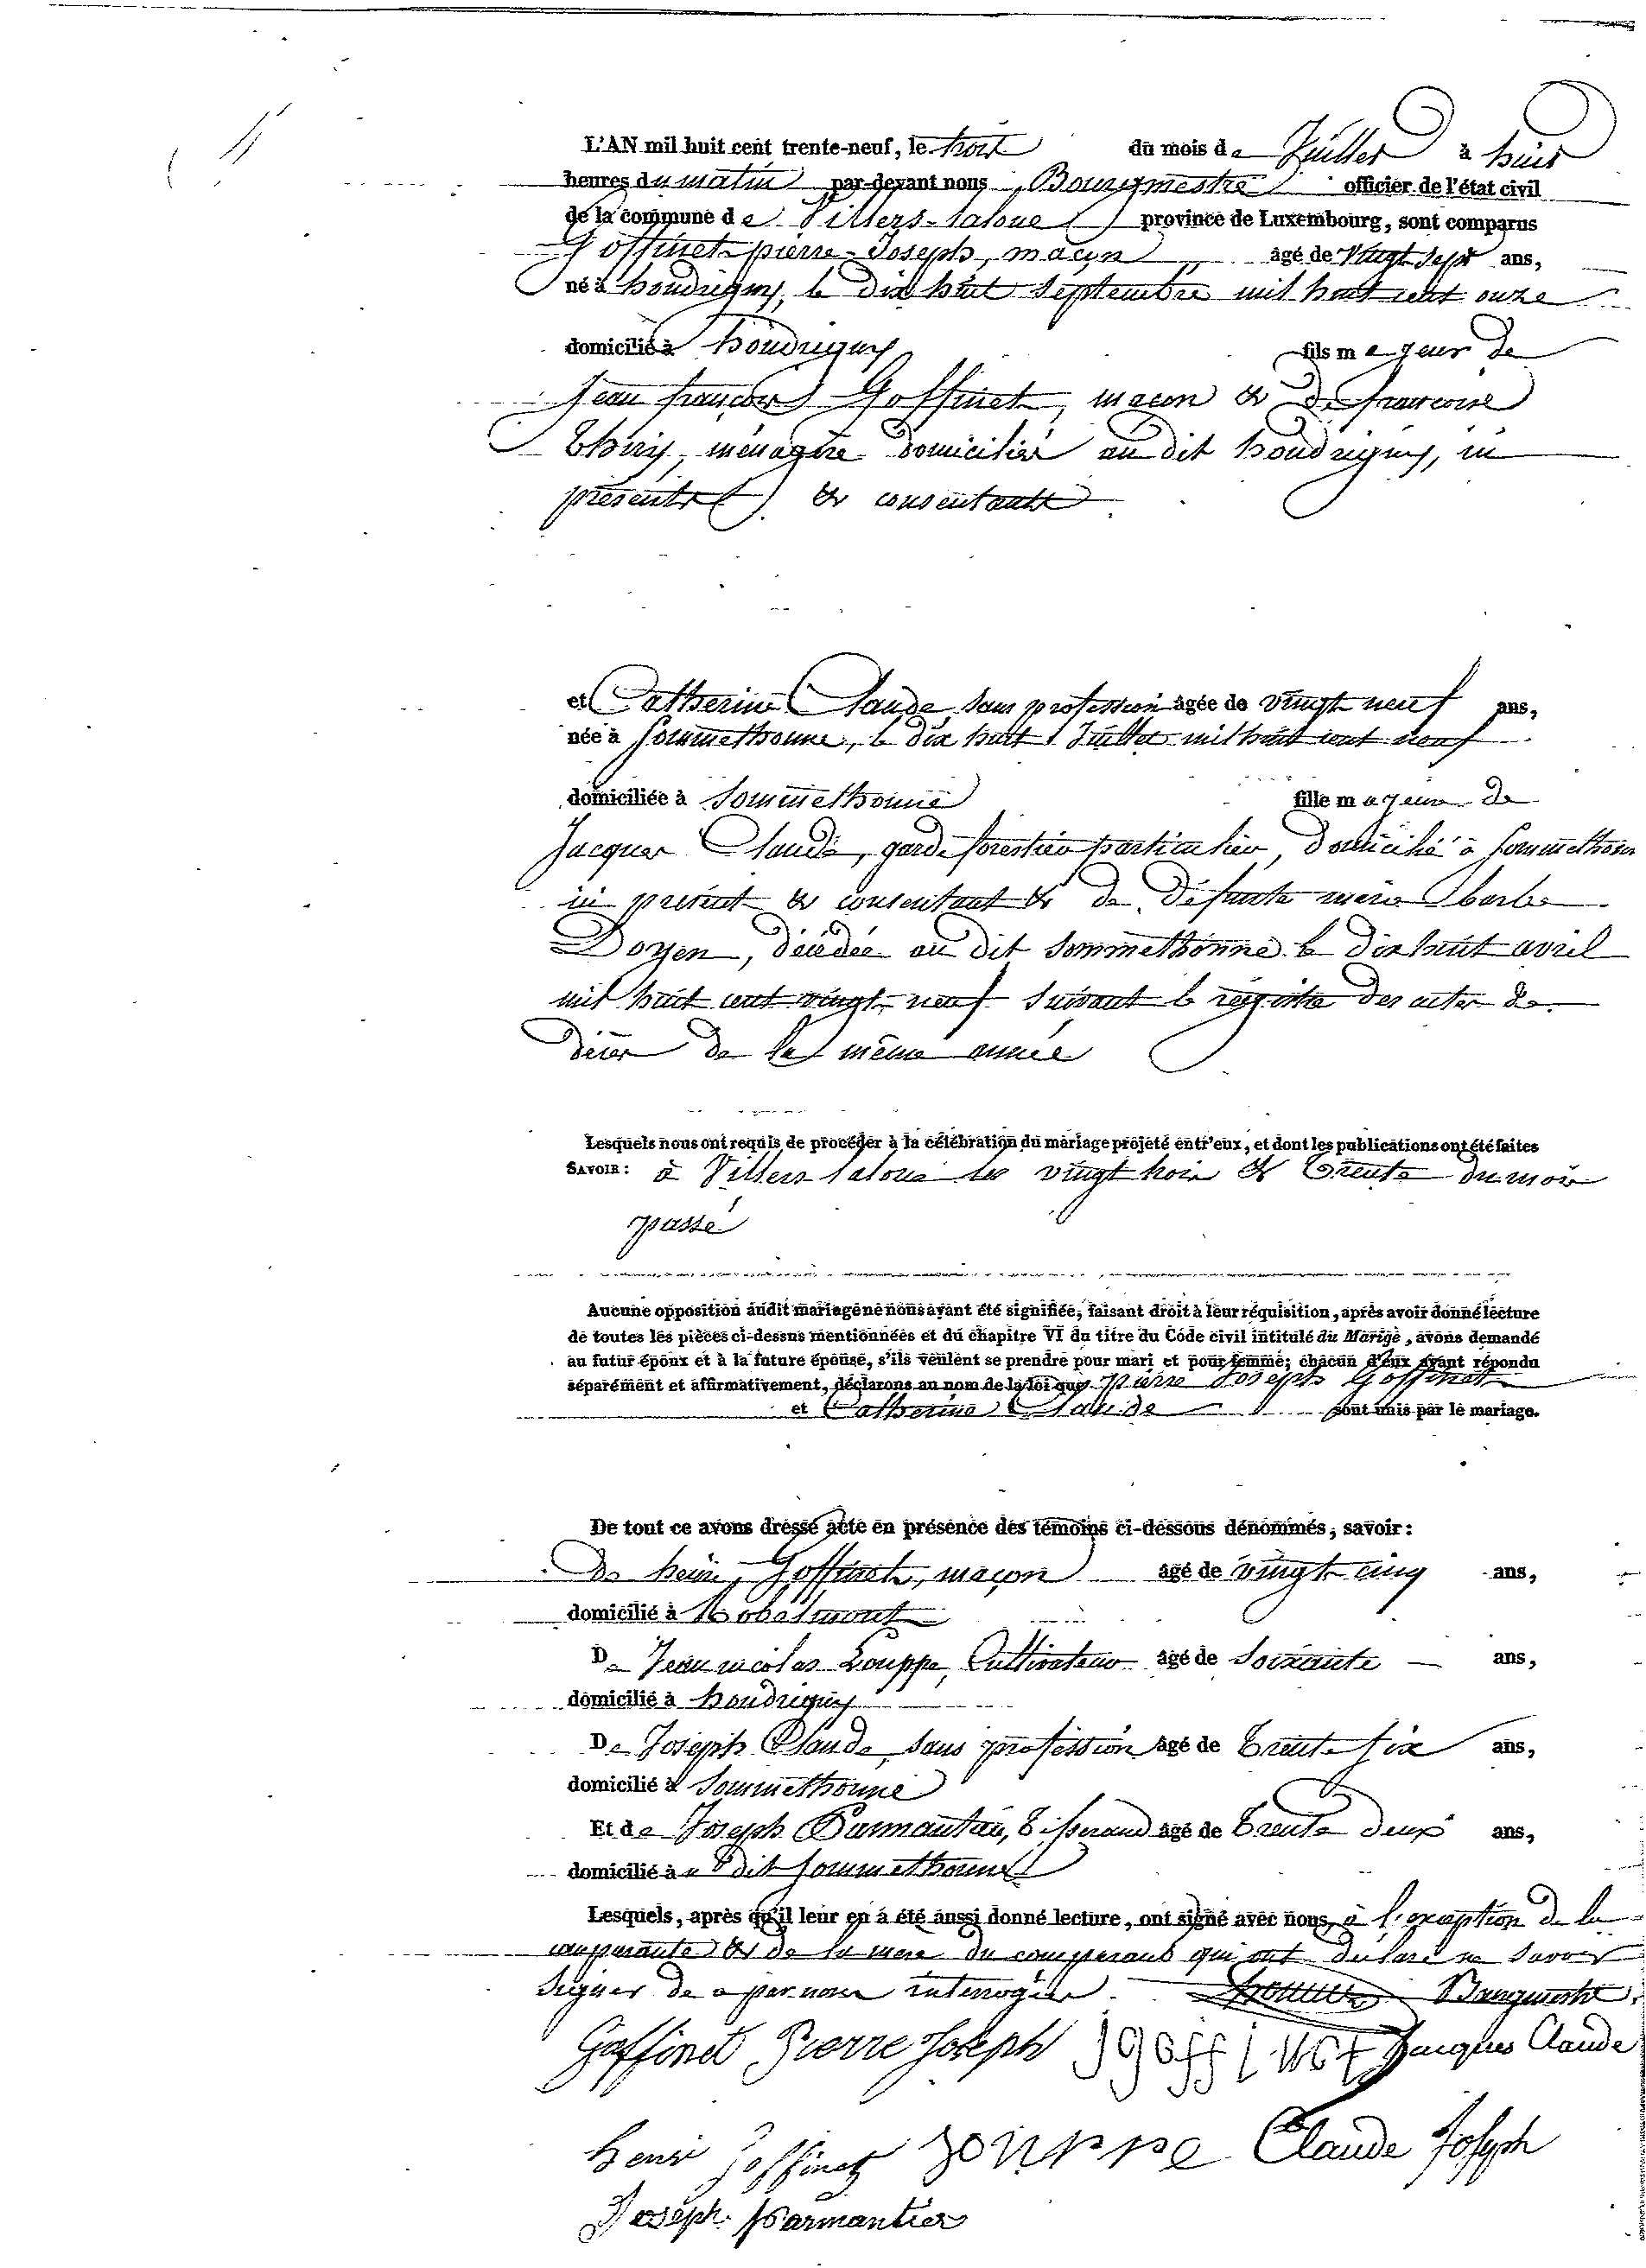 L'AN mil huit cent trente-neuf, le trois du mois de Juillet à huit
heures du matin par-devant nous, Bourgmestre officier de l'état civil
de la commune de Villers-laloue province de Luxembourg, sont comparus
Goffinet pierre-Joseph, maçon âgé de vingt sept ans,
né à houdrigny, le dix huit septembre mil huit cent onze
domicilié à houdrigny fils majeur de
Jean françois Goffinet, maçon & de françoise
Thiry, ménagère domiciliés au dit houdrigny, ici
présents & consentants.
et Catherine Claude sans profession âgée de vingt neuf ans,
née à Sommethonne, le dix huit Juillet mil huit cent neuf
domiciliée à Sommethonne fille majeure de
Jacques Claude, garde forestier particulier, domicilié à Sommethonne
ici présent & consentant & de défunte mère barbe
Doyen, décédée au dit Sommethonne le dix huit avril
mil huit cent vingt-neuf suivant le registre des actes de
décès de la même année
Lesquels nous ont requis de procéder à la célébration du mariage projeté entr'eux, et dont les publications ont été faites
SAVOIR : à Villers-laloue les vingt trois & trente du mois
passé
Aucune opposition audit mariage ne nous ayant été signifiée, faisant droit à leur réquisition, après avoir donné lecture
de toutes les pièces ci-dessus mentionnées et du chapitre VI du titre du Code civil intitulé du Marige, avons demandé
au futur époux et à la future épouse, s'ils veulent se prendre pour mari et pour femme; chacun d'eux ayant répondu
séparément et affirmativement, déclarons au nom de la loi que pierre Joseph Goffinet
et Catherine Claude sont unis par le mariage.
De tout ce avons dressé acte en présence des témoins ci-dessous dénommés, savoir :
De henri Goffinet, maçon âgé de vingt cinq ans,
domicilié à Robelmont
De Jean nicolas Louppe, Cultivateur âgé de Soixante ans,
domicilié à houdrigny
De Joseph Claude, sans profession âgé de trente six ans,
domicilié à Sommethonne
Et de Joseph Parmantier, tisserand âgé de trente deux ans,
domicilié au dit Sommethonne
Lesquels, après qu'il leur en a été aussi donné lecture, ont signé avec nous, à l'exception de la
comparante & de la mère du comparant qui ont déclaré ne savoir
signer de ce par nous interrogées. Bourgmestre.
Goffinet Pierre Joseph jgoffinet Jacques Claude
henri goffinet Louppe Claude Joseph
Joseph Parmantier